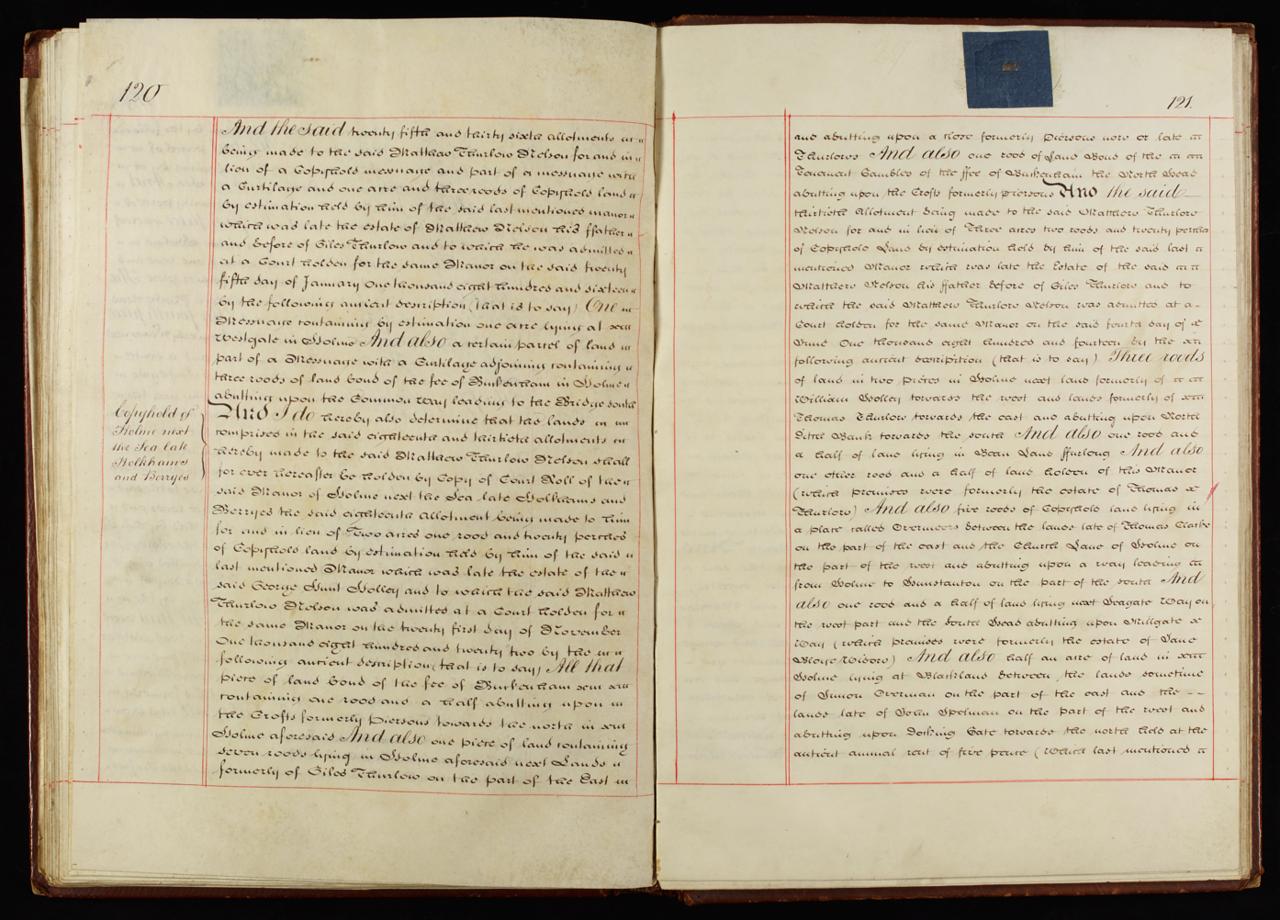 120
And the said twenty fifth and thirty sixth allotments
being made to the said Matthew Thurlow Nelson for and in
lieu of a Copyhold messuage and part of a messuage with
a Curtilage and one acre and three roods of Copyhold land
by estimation held by him of the said last mentioned manor
which was late the estate of Matthew Nelson his ffather
and before of Giles Thurlow and to which he was admitted
at a Court holden for the same Manor on the said twenty
fifth day of January One thousand eight hundred and sixteen
by the following ancient description (that is to say) One
Messuage containing by estimation one acre lying at
Westgate in Holme And also a certain parcel of land
part of a Messuage with a Curtilage adjoining containing
three roods of land bond of the fee of Buckenham in Holme
abutting upon the Common Way leading to the Bridge south
Copyhold of
Holme next
the Sea late
Holkhams
and Berryes
And I do hereby also determine that the lands
comprised in the said eighteenth and thirtieth allotments
hereby made to the said Matthew Thurlow Nelson shall
for ever hereafter be holden by Copy of Court Roll of the
said Manor of Holme next the Sea late Holkhams and
Berryes the said eighteenth allotment being made to him
for and in lieu of Two acres one rood and twenty perches
of Copyhold land by estimation held by him of the said
last mentioned Manor which was late the estate of the
said George Hunt Holley and to which the said Matthew
Thurlow Nelson was admitted at a Court holden for
the same Manor on the twenty first day of November
One thousand eight hundred and twenty two by the
following ancient description (that is to say) All that
piece of land bond of the fee of Buckenham
containing one rood and a half abutting upon
the Crofts formerly Piersons towards the north in
Holme aforesaid And also one piece of land containing
seven roods lying in Holme aforesaid next Lands
formerly of Giles Thurlow on the part of the East
121.
and abutting upon a close formerly Piersons now or late
Thurlows And also one rood of Land Bond of the
Tenement Gambles of the ffee of Buckenham the North Head
abutting upon the Crofts formerly Piersons And the said
thirtieth Allotment being made to the said Matthew Thurlow
Nelson for and in lieu of Three acres two roods and twenty perches
of Copyhold Land by estimation held by him of the said last
mentioned Manor which was late the Estate of the said
Matthew Nelson his ffather before of Giles Thurlow and to
which the said Matthew Thurlow Nelson was admitted at a
Court holden for the same Manor on the said fourth day of
June One thousand eight hundred and fourteen by the
following ancient description (that is to say) Three roods
of land in two pieces in Holme next land formerly of
William Holley towards the west and lands formerly of
Thomas Thurlow towards the east and abutting upon North
ditch Bank towards the south And also one rood and
a half of land lying in Bean Land ffurlong And also
one other rood and a half of land holden of this Manor
(which premises were formerly the estate of Thomas
Thurlow) And also five roods of Copyhold land lying in
a place called Overmeers between the lands late of Thomas Clarke
on the part of the east and the Church Lane of Holme on
the part of the west and abutting upon a way leading
from Holme to Hunstanton on the part of the south And
also one rood and a half of land lying next Seagate Way on
the west part and the South Head abutting upon Millgate
Way (which premises were formerly the estate of Jane
Widow) And also half an acre of land in
Holme lying at Blackland between the lands sometime
of Simon Overman on the part of the east and the
lands late of John Spelman on the part of the west and
abutting upon Docking Gate towards the north held at the
ancient annual rent of five pence (which last mentioned